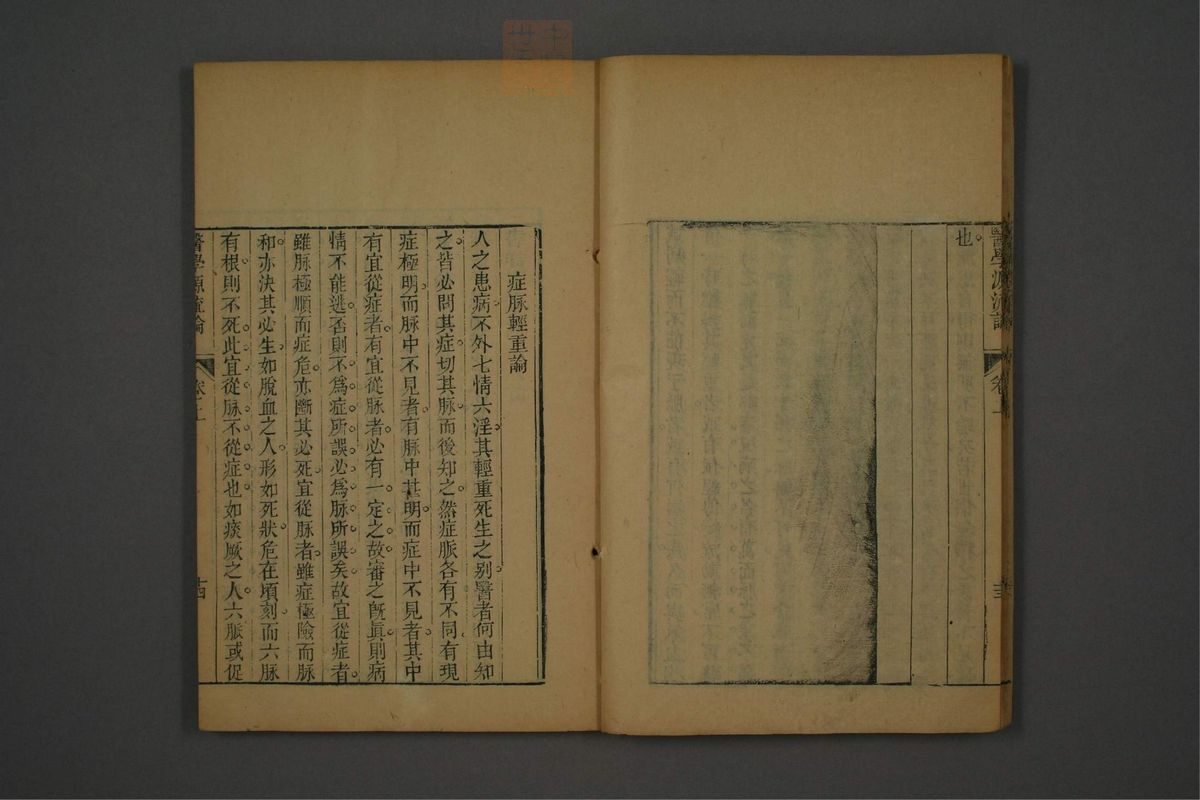 醫學源流論
卷上
也
症脉輕重論
人之患病不外七情六淫其輕重死生之别醫者何由知
之皆必問其症切其脉而後知之然症脈各有不同有現
症極明而脉中不見者有脉中甚明而症中不見者其中
有宜從症者有宜從脉者必有一定之故審之旣眞則病
情不能逃否則不爲症所誤必爲脉所誤矣故宜從症者
雖脉極順而症危亦斷其必死宜從脉者雖症極險而脉
和亦決其必生如脫血之人形如死狀危在頃刻而六脉
有根則不死此宜從脉不從症也如痰厥之人六脈或促
醫學源流論
卷上
十四